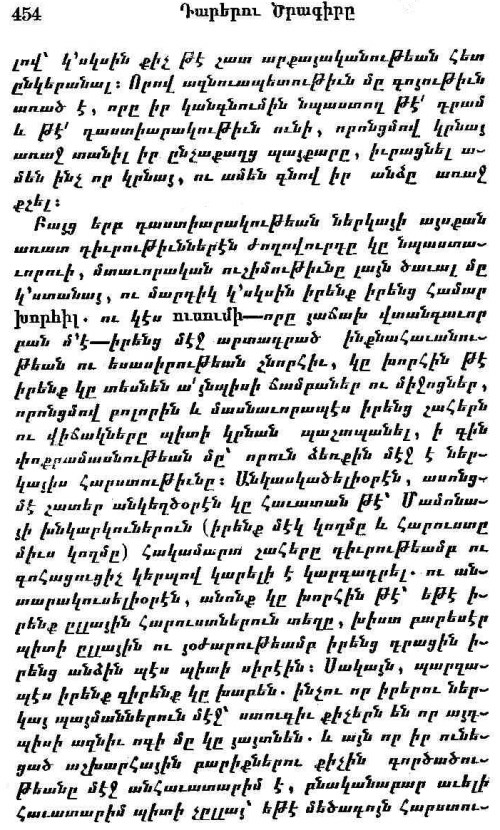 454 Դարերու Ծրագիրը
լով՝ կ՚սկսին քիչ թէ շատ արքայականութեան հետ
ընկերանալ։ Որով ազնուապետութիւն մը գոյութիւն
առած է, որը իր կանգնումին նպաստող թէ՛ դրամ
և թէ՛ դաստիարակութիւն ունի, որոնցմով կրնայ
առաջ տանիլ իր ընչաքաղց պայքարը, իւրացնել ա-
մեն ինչ որ կրնայ, ու ամեն գնով իր անձը առաջ
քշել։
Բայց երբ դաստիարակութեան ներկայի այսքան
առատ դիւրութիւններէն ժողովուրդը կը նպաստա-
ւորուի, մտաւորական ուշիմութիւնը լայն ծաւալ մը
կ՚ստանայ, ու մարդիկ կ՚սկսին իրենք իրենց համար
խորհիլ. ու կէս ուսումի—որը յաճախ վտանգաւոր
բան մ՚է—իրենց մէջ արտադրած ինքնահաւանու-
թեան ու եսասիրութեան շնորհիւ, կը խորհին թէ
իրենք կը տեսնեն ա՛յնպիսի ճամբաներ ու միջոցներ,
որոնցմով բոլորին և մասնաւորապէս իրենց շահերն
ու վիճակները պիտի կրնան պաշտպանել, ի գին
փոքրամասնութեան մը՝ որուն ձեռքին մէջ է ներ-
կայիս հարստութիւնը։ Անկասկածելիօրէն, ասոնց-
մէ շատեր անկեղծօրէն կը հաւատան թէ՝ Մամոնա-
յի խնկարկուներուն (իրենք մէկ կողմը և հարուստը
միւս կողմը) հակամարտ շահերը դիւրութեամբ ու
գոհացուցիչ կերպով կարելի է կարգադրել. ու ան-
տարակուսելիօրէն, անոնք կը խորհին թէ՝ եթէ ի-
րենք ըլլային հարուստներուն տեղը, խիստ բարեսէր
պիտի ըլլային ու յօժարութեամբ իրենց դրացին ի-
րենց անձին պէս պիտի սիրէին։ Սակայն, պարզա-
պէս իրենք զիրենք կը խաբեն. ինչու որ իրերու ներ-
կայ պայմաններուն մէջ՝ ստուգիւ քիչերն են որ այդ-
պիսի ազնիւ ոգի մը կը յայտնեն. և այն որ իր ունե-
ցած աշխարհային բարիքներու քիչին գործածու-
թեանը մէջ անհաւատարիմ է, բնականաբար աւելի
հաւատարիմ պիտի չըլլայ՝ եթէ մեծագոյն հարստու-